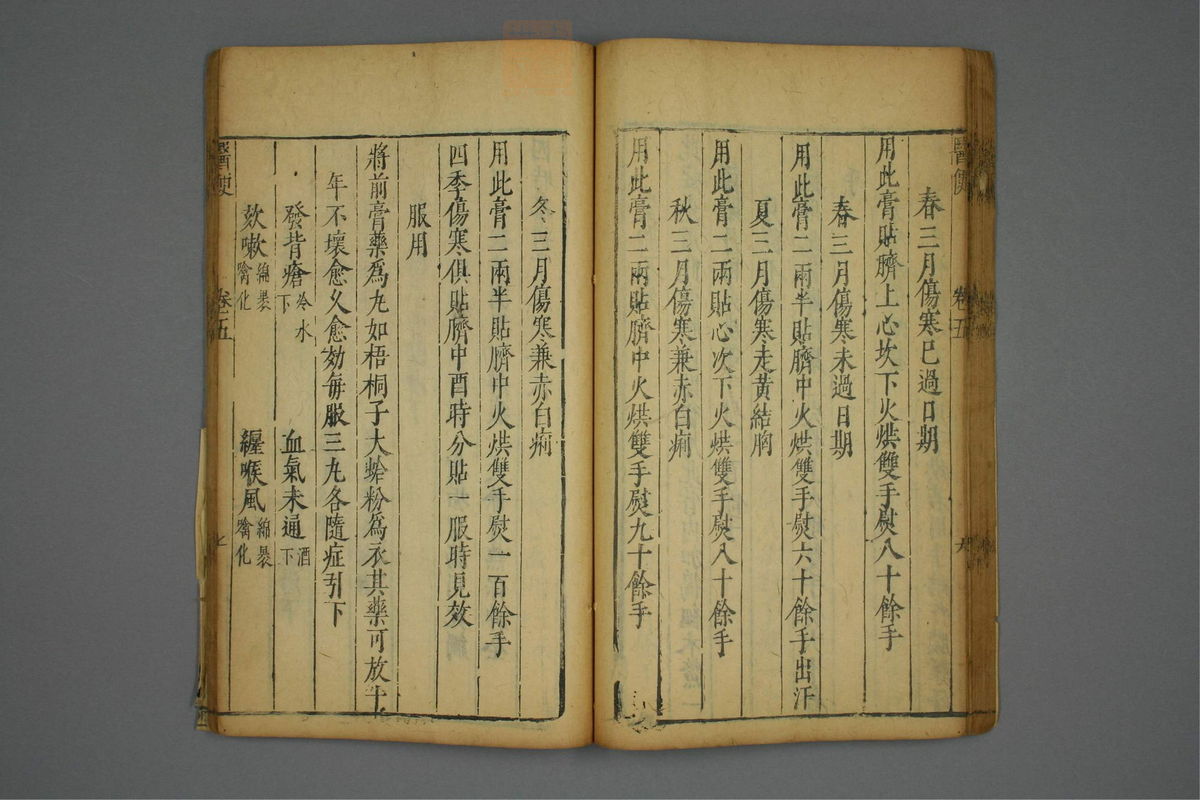 醫便
卷五
春三月傷寒已過日期
用此膏貼臍上心坎下火烘雙手熨八十餘手
春三月傷寒未過日期
用此膏二兩半貼臍中火烘雙手熨六十餘手出汗
夏三月傷寒走黃結胸
用此膏二兩貼心次下火烘雙手熨八十餘手
秋三月傷寒兼赤白痢
用此膏二兩貼臍中火烘雙手熨九十餘手
冬三月傷寒兼赤白痢
用此膏二兩半貼臍中火烘雙手熨一百餘手
四季傷寒俱貼臍中酉時分貼一服時見效
服用
將前膏藥為丸如梧桐子大蛤粉為衣其藥可放十
年不壞愈久愈効每服三丸各隨症引下
發背瘡冷水下 血氣未通酒下
欬嗽綿裹噙化 纏喉風綿裹噙化
醫便
卷五
七